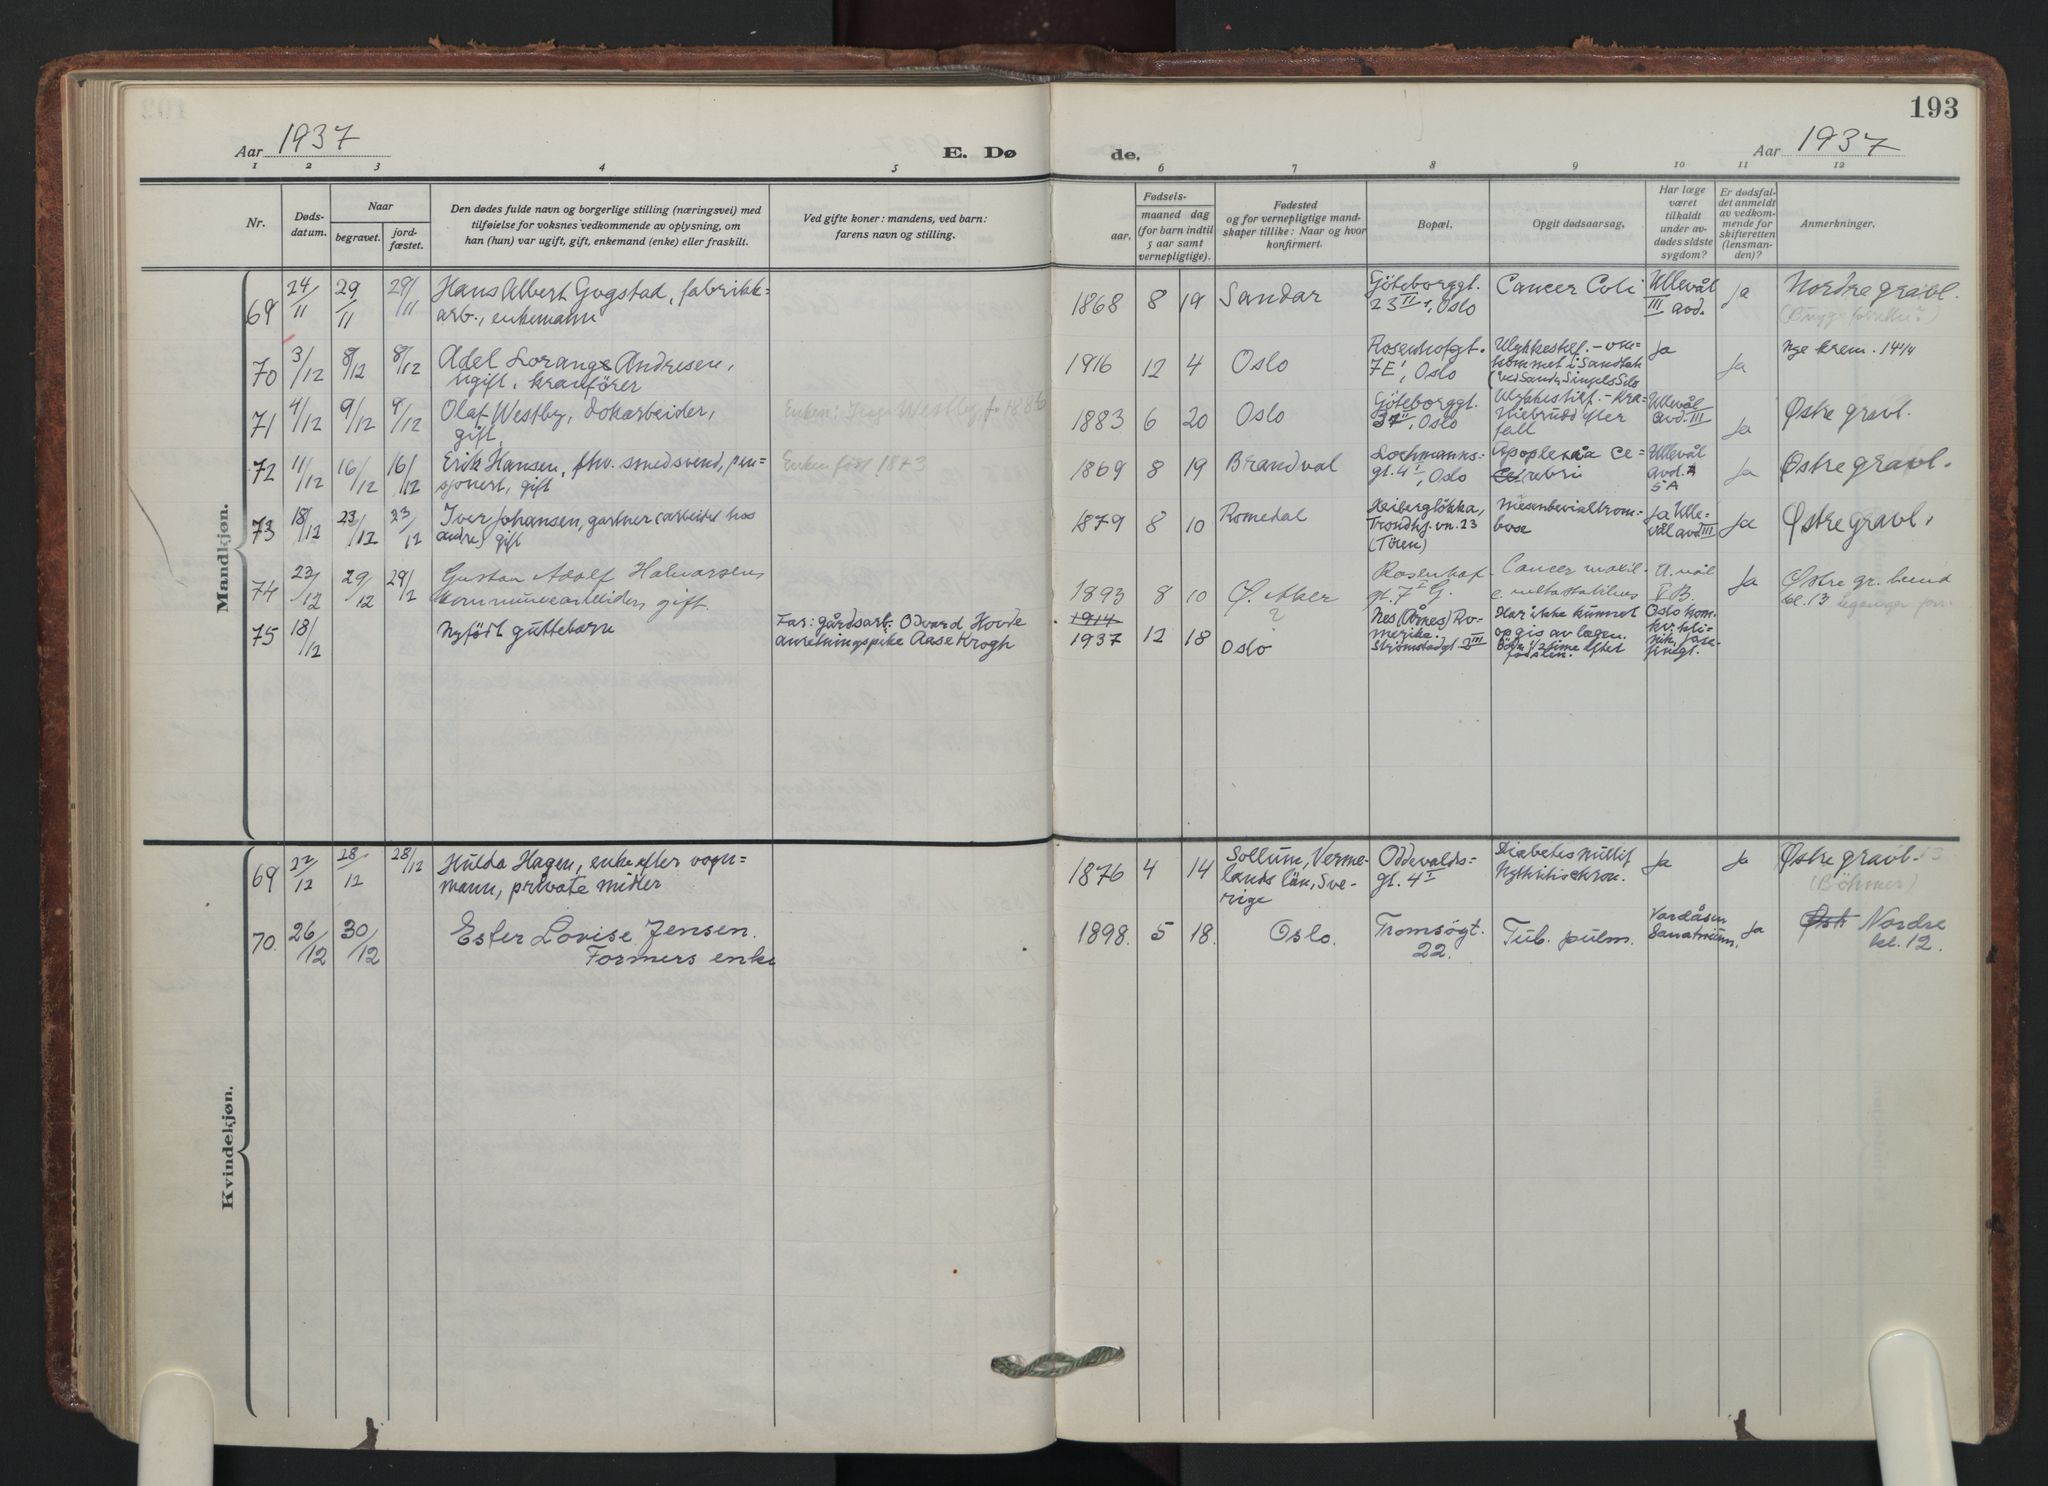 193
Aar 1937
E. Dø
de.
Aar 1937
1 2 3 4 5 6 7 8 9 10 11 12
Nr.
Døds-
datum.
Naar
begravet.
jord-
fæstet.
Den dødes fulde navn og borgerlige stilling (næringsvei) med
tilføielse for voksnes vedkommende av oplysning, om
han (hun) var ugift, gift, enkemand (enke) eller fraskilt.
Ved gifte koner: mandens, ved barn:
farens navn og stilling.
Fødsels-
aar.
maaned dag
(for barn indtil
5 aar samt
vernepligtige).
Fødested
og for vernepligtige mand-
skaper tillike: Naar og hvor
konfirmert.
Bopæl.
Opgit dødsaarsag.
Har læge
været
tilkaldt
under av-
dødes sidste
sygdom?
Er dødsfal-
det anmeldt
av vedkom-
mende for
skifteretten
(lensman-
den)?
Anmerkninger.
Mandkjøn.
69 24/11 29/11 29/11
Hans Albert Gogstad, fabrikk=
arb., enkemann
1868 8 19 Sandar
Göteborggt.
23 II, Oslo
Cancer Coli
Ullevål
III avd.
Ja
Nordre gravl.
70 3/12 8/12 8/12
Adel Lorange Andresen,
ugift, kranförer
1916 12 4 Oslo
Rosenhofgt.
7E I, Oslo
Ulykkestilf. - om-
kommet i Sandtak
(ved Sand & Singels Silo
Ja
Ja
Nye krem. 14/4
71 4/12 9/12 9/12
Olaf Westby, dokarbeider,
gift,
Enken: Inga Westby, f. 1886
1883 6 20 Oslo
Göteborggt.
37 II, Oslo
Ulykkestilf. - kra-
niebrudd efter
fall
Ullevål
avd. III
Ja
Østre gravl.
72 11/12 16/12 16/12
Erik Hansen, fhv. smedsvend, pen=
sjonert, gift
Enken født 1873
1869 8 19 Brandval
Lochmanns-
gt. 4 I, Oslo
Apoplexia ce-
rebri
Ullevål
avd.
5A
Ja
Østre gravl.
73 18/12 23/12 23/12
Iver Johansen, gartner (arbeidet hos
andre) gift
1879 8 10 Romedal
Heiberglökka,
Trondhj.vn. 23
(Töien)
Mesenterialtrom-
bose
Ja Ulle-
vål avd III
Ja
Østre gravl.
74 23/12 29/12 29/12
Gustav Adolf Halvorsen
kommunearbeider, gift.
1893 8 10 Ø. Aker
Rosenhof
gt. 7 I G.
Cancer maxil.
c. metastatibus
U. vål
Ja
kl. 13
75 18/12
Nyfödt guttebarn
Far: gårdsarb. Odvard Hovde
anretningspike Aase Krogh
1914
1937 12 18
?
Oslo
Nes (Årnes) Ro-
merike.
Strömstadgt. 3 III
Har ikke kunnet
opgis av lægen.
Död 1/2 time efter
födslen.
Oslo kom.
kv. kli-
nik, Jose-
finegt.
Kvindekjøn.
69 22/12 28/12 28/12
Hulda Hagen, enke efter vogn=
mann, private midler
1876 4 14
Sollum, Verme-
lands län, Sve-
rige
Oddevalds-
gt. 4 I
Diabetes mellit
Nephritis chron.
Ja
Ja
Østre gravl. 13
(Böhmer)
70. 26/12 30/12
Ester Lovise Jensen.
Formers enke
1898. 5 18. Oslo.
Tromsøgt.
22.
Tub. pulm.
Vardåsen
Sanatorium.
Ja
Øst Nordre
kl. 12.